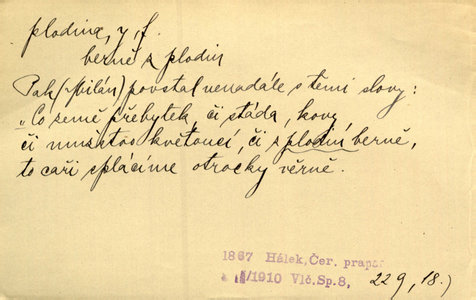 plodina, y, f.
berně z plodin
Pak (Milán) povstal nenadále s těmi slovy:
„Co země přebytek, či stáda, kovy,
či mužstvo květoucí, či z plodin berně,
to caři splácíme otrocky věrně.
1867 Hálek, Čer. prapor
/1910 Vlč. Sp. 8, 229, 18.)